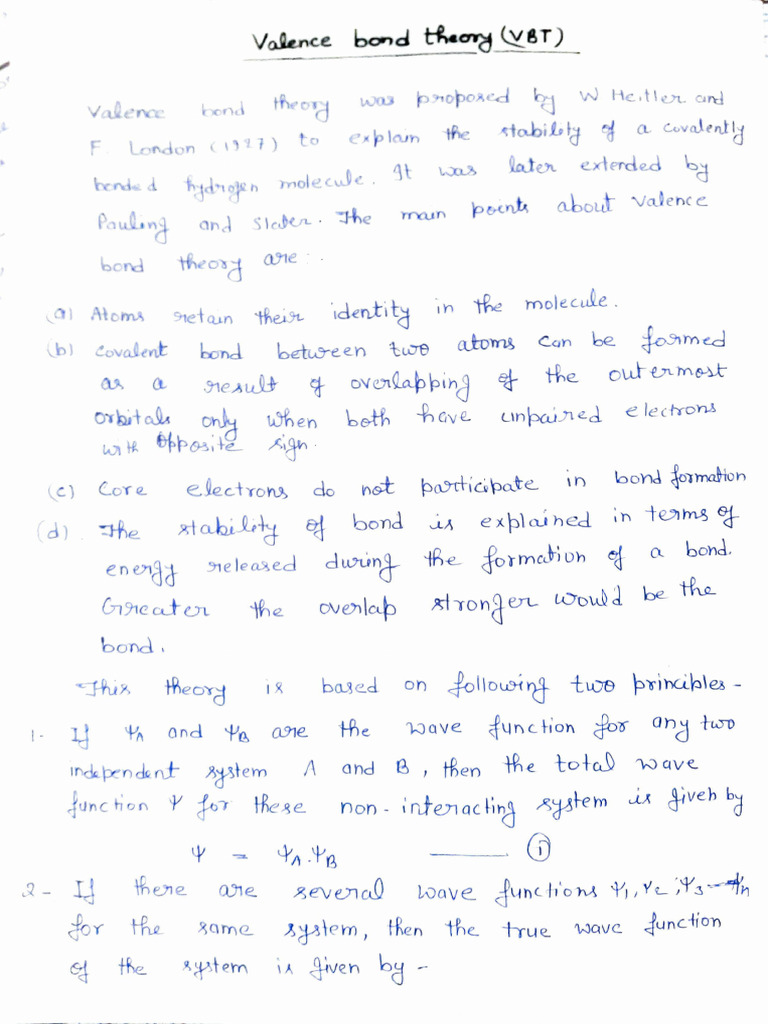 Valence bond theory (VBT)
Valence bond theory was proposed by W Heitler and
F. London (1927) to explain the stability of a covalently
bonded hydrogen molecule. It was later extended by
Pauling and Slater. The main points about valence
bond theory are:-
(a) Atoms retain their identity in the molecule.
(b) Covalent bond between two atoms can be formed
as a result of overlapping of the outermost
orbitals only when both have unpaired electrons
with opposite sign.
(c) Core electrons do not participate in bond formation
(d). The stability of bond is explained in terms of
energy released during the formation of a bond.
Greater the overlap stronger would be the
bond.
This theory is based on following two principles-
1- If ΨA and ΨB are the wave function for any two
independent system A and B, then the total wave
function Ψ for these non-interacting system is given by
Ψ = ΨA.ΨB —— ①
2- If there are several wave functions Ψ1, Ψ2, Ψ3 --- Ψn
for the same system, then the true wave function
of the system is given by -